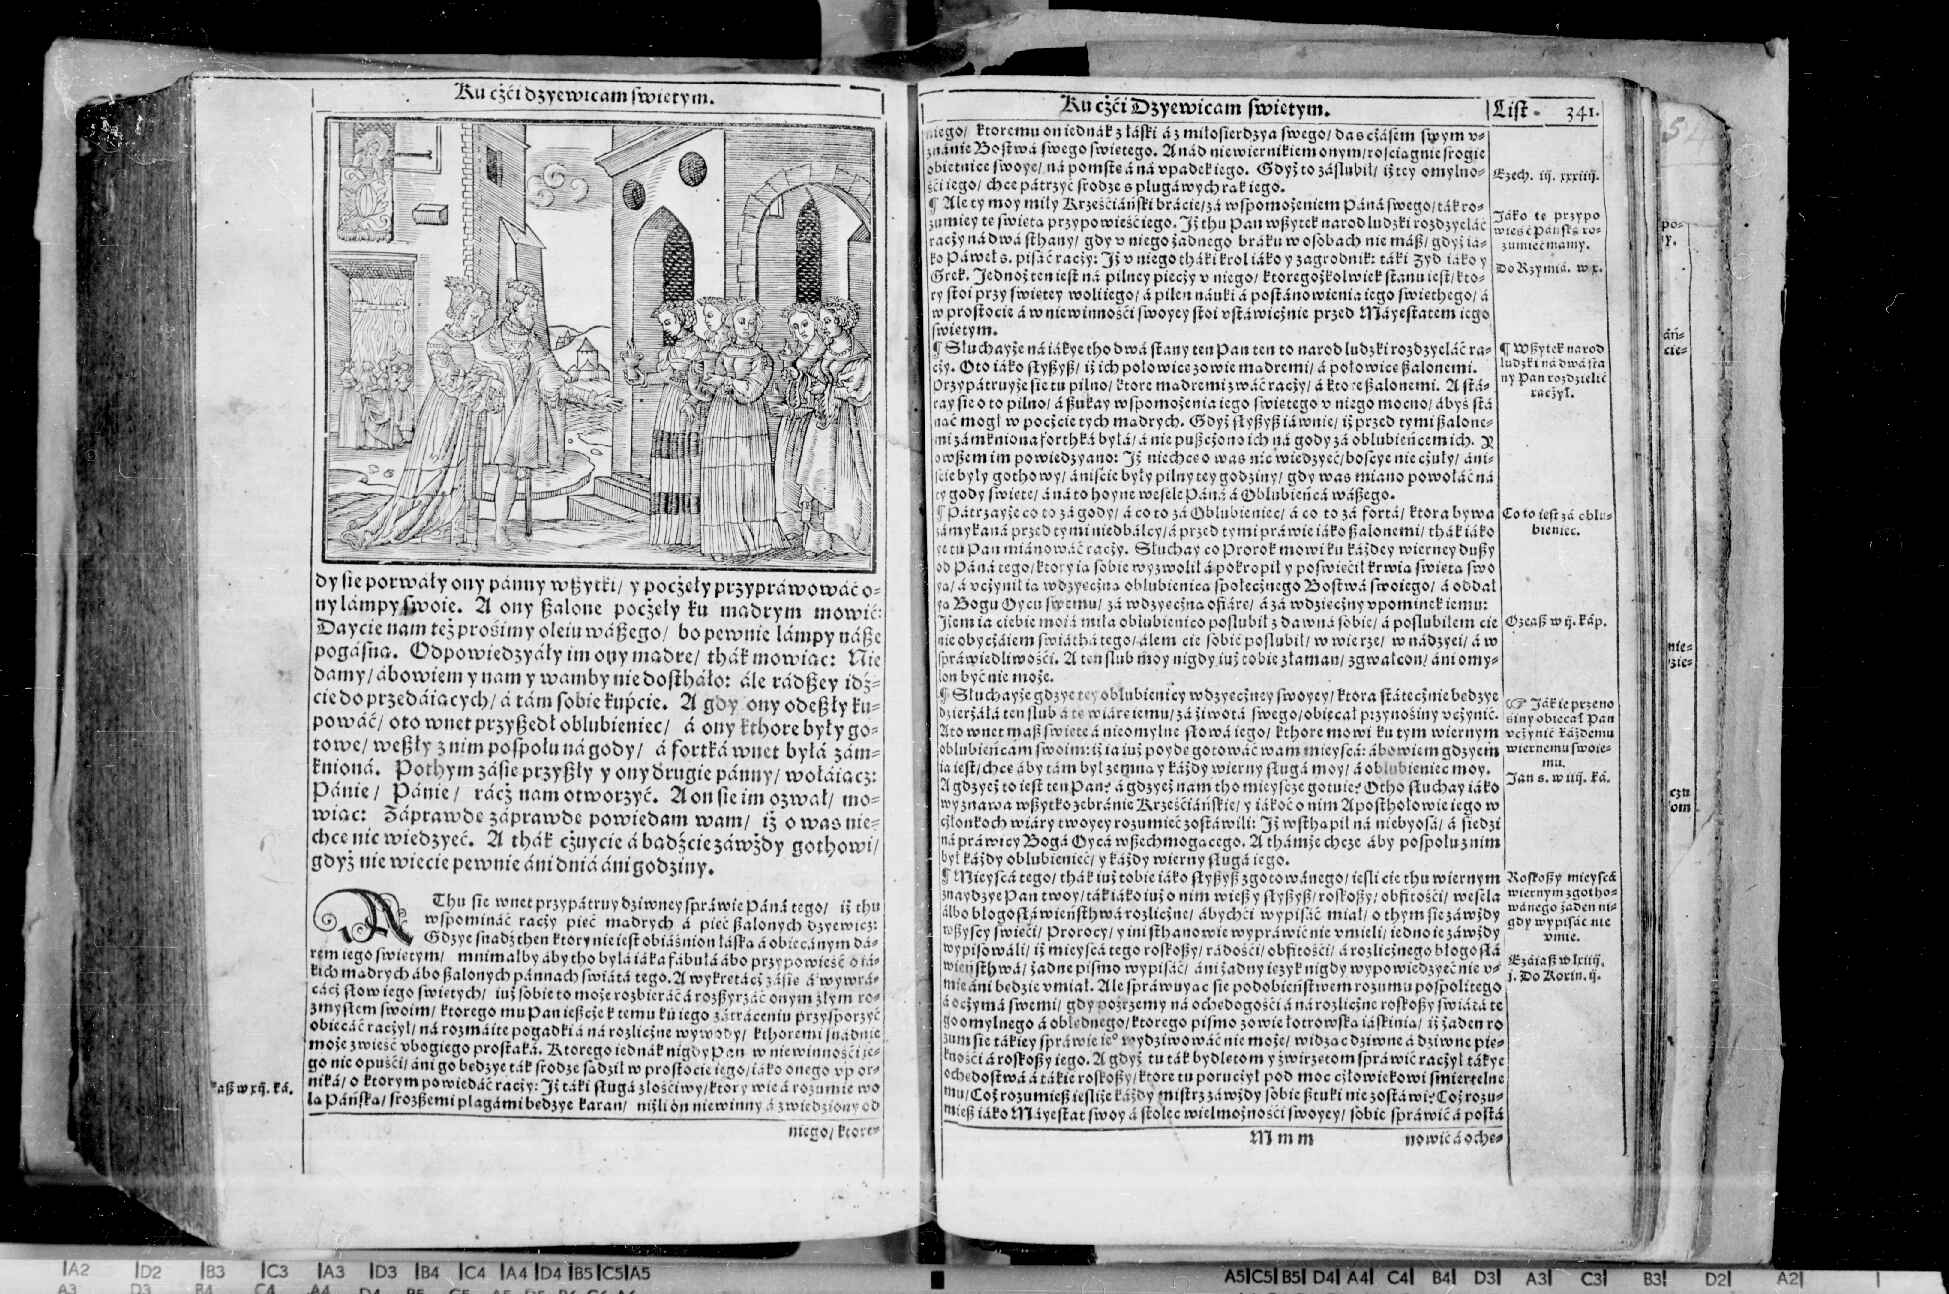 Ku cżći dzyewicam swiętym.
dy się porwáły ony pánny wßytki/ y pocżęły przypráwowáć o-
ny lámpy swoie. A ony ßalone pocżęły ku mądrym mowić:
Dayćie nam też prośimy oleiu wáßego/ bo pewnie lámpy náße
pogásną. Odpowiedzyáły im ony mądre/ thák mowiąc: Nie
damy/ ábowiem y nam y wamby nie dostháło: ále rádßey idź-
cie do przedáiących/ á tám sobie kupćie. A gdy ony odeßły ku-
powáć/ oto wnet przyßedł oblubieniec/ á ony kthore były go-
towe/ weßły z nim pospołu ná gody/ á fortká wnet byłá zám-
knioná. Pothym zásie przyßły y ony drugie pánny/ wołáiącz:
Pánie/ Pánie/ rácż nam otworzyć. A on się im ozwał/ mo-
wiąc: Záprawdę záprawdę powiedam wam/ iż o was nie-
chcę nic wiedzyeć. A thák cżuycie á bądźcie záwżdy gothowi/
gdyż nie wiecie pewnie áni dniá áni godziny.
A Thu się wnet przypátruy dziwney spráwie Páná tego/ iż thu
wspomináć racży pięć mądrych á pięć ßalonych dzyewicz:
Gdzye snadź then ktory nie iest obiáśnion łáską á obiecánym dá-
rem iego świętym/ mnimałby áby tho byłá iáka fábułá ábo przypowieść o iá-
kich mądrych ábo ßalonych pánnách świátá tego. A wykręcáiąc zásię á wywrá-
cáiąc słow iego świętych/ iuż sobie to może rozbieráć á rozßyrzáć onym złym ro-
zmysłem swoim/ ktorego mu Pan ießcże k temu ku iego zátráceniu przysporzyć
obiecáć racżył/ ná rozmáite pogadki á ná rozlicżne wywody/ kthoremi snádnie
może zwieść vbogiego prostaká. Ktorego iednák nigdy Pan w niewinności ie-
go nie opuśći/ áni go będzye ták srodze sądził w prostocie iego/ iáko onego vpor-
niká/ o ktorym powiedáć racży: Iż táki sługá złościwy/ ktory wie á rozumie wo
lą Páńską/ sroższemi plagámi będzye karan/ niżli on niewinny á zwiedziony od
kaß w xij. ká.
niego/ ktore-
Ku cżći Dzyewicam swiętym.
List. 341.
niego/ ktoremu on iednák z łáski á z miłosierdzya swego/ da s cżásem swym v-
znánie Bostwá swego świętego. A nád niewiernikiem onym/ rościągnie srogie
obietnice swoye/ ná pomstę á ná vpadek iego. Gdyż to záślubił/ iż tey omylno-
ści iego/ chce pátrzyć srodze s plugáwych rąk iego.
¶ Ale ty moy miły Krześciáński brácie/ zá wspomożeniem Páná swego/ ták ro-
zumiey tę świętą przypowieść iego. Iż thu Pan wßytek narod ludzki rozdzyeláć
racży ná dwá sthany/ gdy v niego żadnego bráku w osobách nie máß/ gdyż iá-
ko Páweł s. pisáć racży: Iż v niego tháki krol iáko y zagrodnik: táki Żyd iáko y
Grek. Jednoż ten iest ná pilney piecży v niego/ ktoregożkolwiek stanu iest/ kto-
ry stoi przy świętey woli iego/ á pilen náuki á postánowienia iego świethego/ á
w prostocie á w niewinnośći swoyey stoi vstáwicżnie przed Máyestatem iego
świętym.
¶ Słuchayże ná iákye tho dwá stany ten Pan ten to narod ludzki rozdzyeláć ra-
cży. Oto iáko słyßyß/ iż ich połowicę zowie mądremi/ á połowicę ßalonemi.
Przypátruyże się tu pilno/ ktore mądremi zwáć racży/ á ktore ßalonemi. A stá-
ray się o to pilno/ á ßukay wspomożenia iego świętego v niego mocno/ ábyś stá
nąć mogł w pocżćie tych mądrych. Gdyż słyßyß iáwnie/ iż przed tymi ßalone-
mi zámkniona forthká byłá/ á nie pußcżono ich ná gody zá oblubieńcem ich. Y
owßem im powiedzyano: Iż niechcę o was nic wiedzyeć/ boście nie cżuły/ áni-
ście były gothowy/ ániście były pilny tey godziny/ gdy was miano powołáć ná
ty gody święte/ á ná to hoyne wesele Páná á Oblubieńcá wáßego.
¶ Pátrzayże co to zá gody/ á co to zá Oblubieniec/ á co to zá fortá/ ktora bywa
zámykána przed tymi niedbálcy/ á przed tymi práwie iáko ßalonemi/ thák iáko
ye tu Pan miánowáć racży. Słuchay co Prorok mowi ku káżdey wierney dußy
od Páná tego/ ktory ią sobie wyzwolił á pokropił y poświęcił krwią świętą swo
yą/ á vcżynił ią wdzyecżną oblubienicą społecżnego Bostwá swoiego/ á oddał
ią Bogu Oycu swemu/ zá wdzyecżną ofiárę/ á zá wdziecżny vpominek iemu:
Iżem ia ciebie moiá miła oblubienico poślubił z dawná sobie/ á poślubiłem cię
nie obycżáiem świáthá tego/ álem cię sobie poślubił/ w wierze/ w nádzyei/ á w
spráwiedliwośći. A ten ślub moy nigdy iuż tobie złaman/ zgwałcon/ áni omy-
lon być nie może.
¶ Słuchayże gdzye tey oblubienicy wdzyecżney swoyey/ ktora státecżnie będzye
dzierżáłá ten ślub á tę wiárę iemu/ zá żiwotá swego/ obiecał przynośiny vcżynić.
Ato wnet maß święte á nieomylne słowá iego/ kthore mowi ku tym wiernym
oblubieńcam swoim: iż ia iuż poydę gotowáć wam mieyscá: ábowiem gdzyem
ia iest/ chcę áby tám był ze mną y káżdy wierny sługá moy/ á oblubieniec moy.
A gdzyeż to iest ten Pan? á gdzyeż nam tho mieysce gotuie? Otho słuchay iáko
wyznawa wßytko zebránie Krześciáńskie/ y iákoć o nim Apostholowie iego w
cżłonkoch wiáry twoyey rozumieć zostáwili: Iż wsthąpił ná niebyosá/ á siedzi
ná práwicy Bogá Oycá wßechmogącego. A thámże chcze áby pospołu z nim
był káżdy oblubieniec/ y káżdy wierny sługá iego.
¶ Mieyscá tego/ thák iuż tobie iáko słyßyß zgotowánego/ iesli cię thu wiernym
znaydzye Pan twoy/ ták iáko iuż o nim wieß y słyßyß/ roskoßy/ obfitośći/ weselá
álbo błogosłáwieństhwá rozlicżne/ ábychći wypisáć miał/ o thym się záwżdy
wßyscy święći/ Prorocy/ y ini sthanowie wypráwić nie vmieli/ iedno ie záwżdy
wypisowáli/ iż mieyscá tego roskoßy/ rádośći/ obfitośći/ á rozlicżnego błogosłá
wieństhwá/ żadne pismo wypisáć/ áni żadny ięzyk nigdy wypowiedzyeć nie v-
mie áni będzie vmiał. Ale spráwuyąc się podobieństwem rozumu pospolitego
á ocżymá swemi/ gdy poźrzemy ná ochędogośći á ná rozlicżne roskoßy świátá te
go omylnego á obłędnego/ ktorego pismo zowie łotrowską iáskinią/ iż żaden ro
zum się tákiey spráwie ie° wydziwowáć nie może/ widząc dziwne á dziwne pię-
knośći á roskoßy iego. A gdyż tu ták bydlętom y źwirzętom spráwić racżył tákye
ochędostwá á tákie roskoßy/ ktore tu porucżył pod moc cżłowiekowi śmiertelne
mu/ Coż rozumieß iesliże káżdy mistrz záwżdy sobie ßtuki nie zostáwi? Coż rozu-
mieß iáko Máyestat swoy á stolec wielmożnośći swoyey/ sobie spráwić á postá
M m m
nowić á ochę-
Ezech. iij. xxxiiij.
Jáko tę przypo
wieść Páńską ro-
zumieć mamy.
Do Rzymiá. w x.
¶ Wßytek narod
ludzki ná dwá sta
ny Pan rozdzielić
racżył.
Co to iest zá oblu-
bieniec.
Ozeaß w ij. káp.
Jákie przeno
śiny obiecał Pan
vcżynić káżdemu
wiernemu swoie-
mu.
Jan s. w iiij. ká.
Roskoßy mieyscá
wiernym zgotho-
wánego żaden ni-
gdy wypisáć nie
vmie.
Ezáiaß w lxiiij.
j. Do Korin. ij.